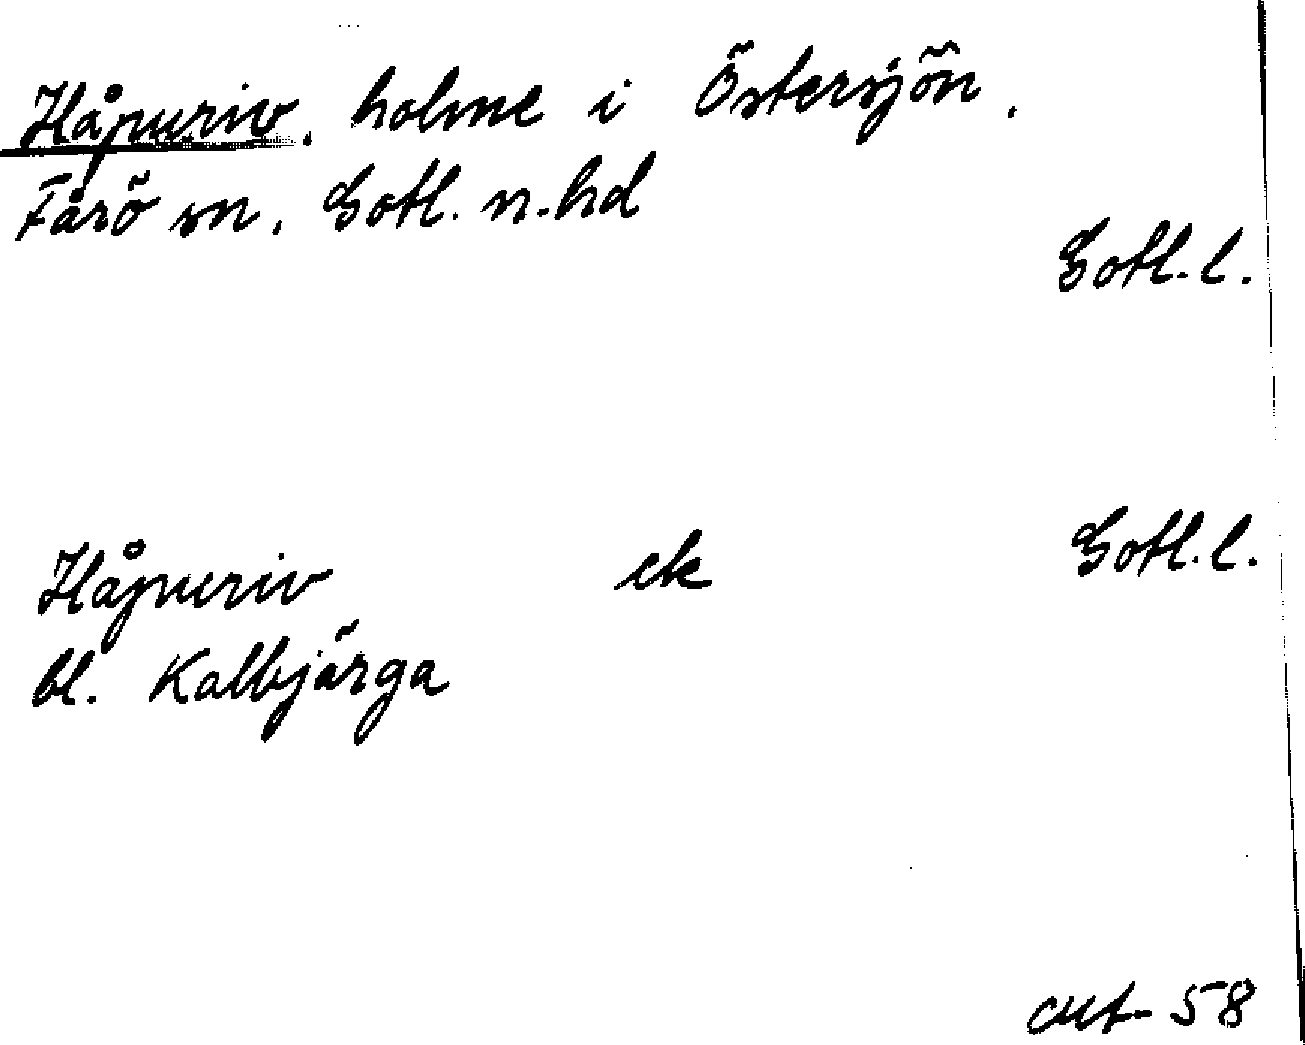 Håpuriv, holme i Östersjön.
Fårö sn, Gotl. n. hd
Gotl. l.
Håpuriv ek Gotl. l.
bl. Kalbjärga
58